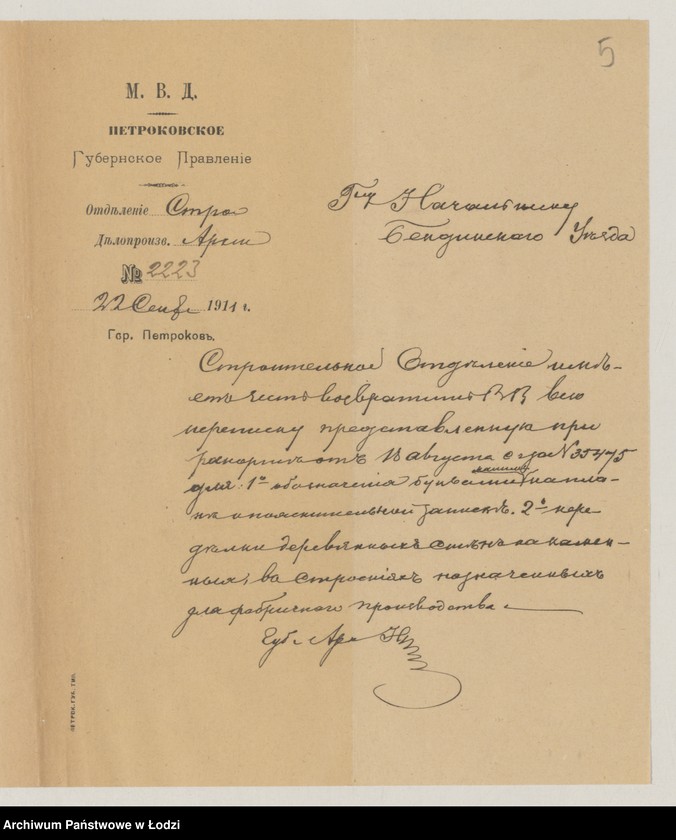 5
М. В. Д.
ПЕТРОКОВСКОЕ
Губернское Правленіе
Отдѣленіе Строи
Дѣлопроизв.
№ 2223
22 Сент 1911 г.
Гор. Петроковъ.
Г-ну Начальнику
Бендинскаго Уѣзда
Строительное Отдѣленіе имѣ-
етъ честь возвратить ВВ всю
переписку представленную при
рапортѣ отъ 18 августа с года N 35475
для 1º обозначенія буквами машинъ на пла-
нѣ и пояснительной запискѣ. 2º пере
дѣлки деревянныхъ стѣнъ на камен-
ныя, въ строеніяхъ назначенныхъ
для фабричного производства.
Губ. Арх
ПЕТРОК.ГУБ.ТИП.
Archiwum Państwowe w Łodzi